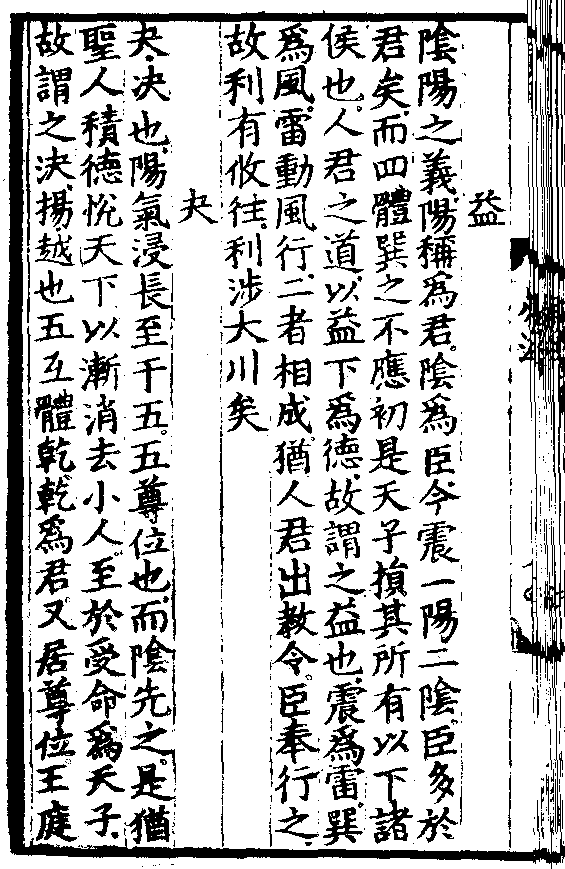 益
陰陽之義陽稱為君陰為臣今震一陽二陰臣多於
君矣而四體巽之不應初是天子損其所有以下諸
侯也人君之道以益下為德故謂之益也震為雷巽
為風雷動風行二者相成猶人君出教令臣奉行之
故利有攸往利涉大川矣
夬
夬決也陽氣浸長至于五五尊位也而陰先之是猶
聖人積德悅天下以漸消去小人至於受命為天子
故謂之決揚越也五互體乾乾為君又居尊位王庭